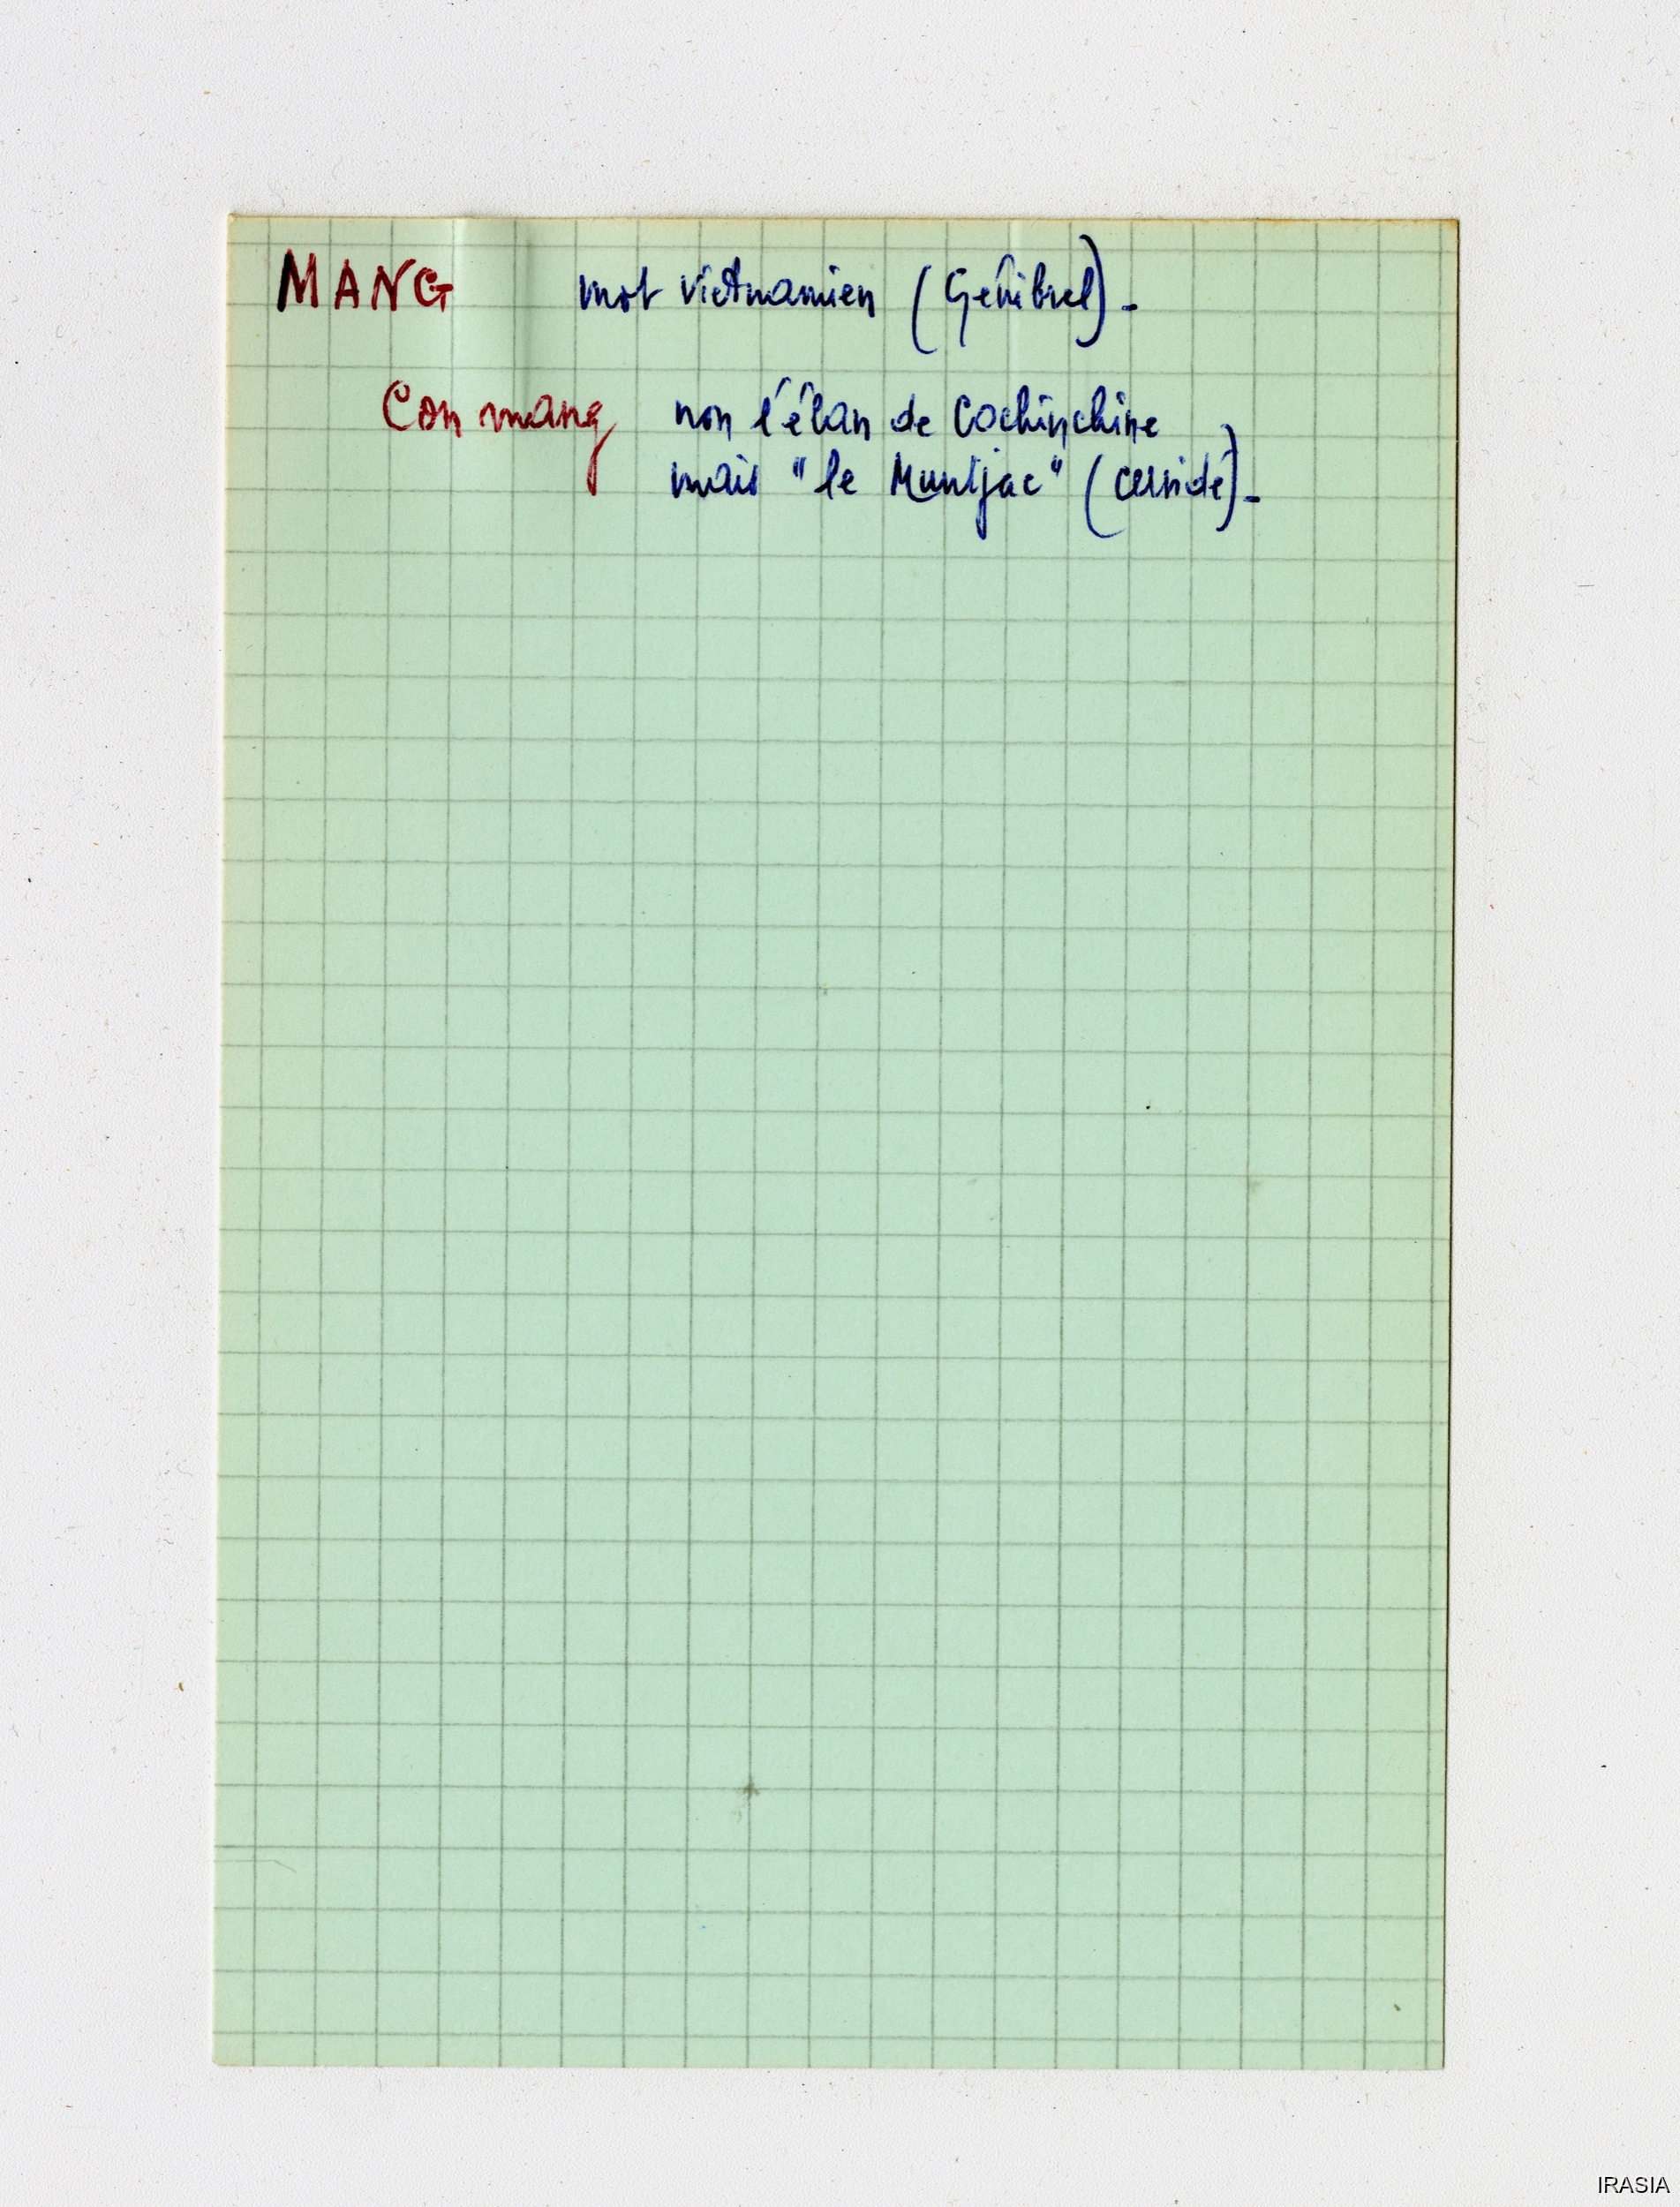 MANG mot vietnamien (Génibrel)-
Con mang non l'élan de Cochinchine
mais "le Muntjac" (cervidé)-
IRASIA